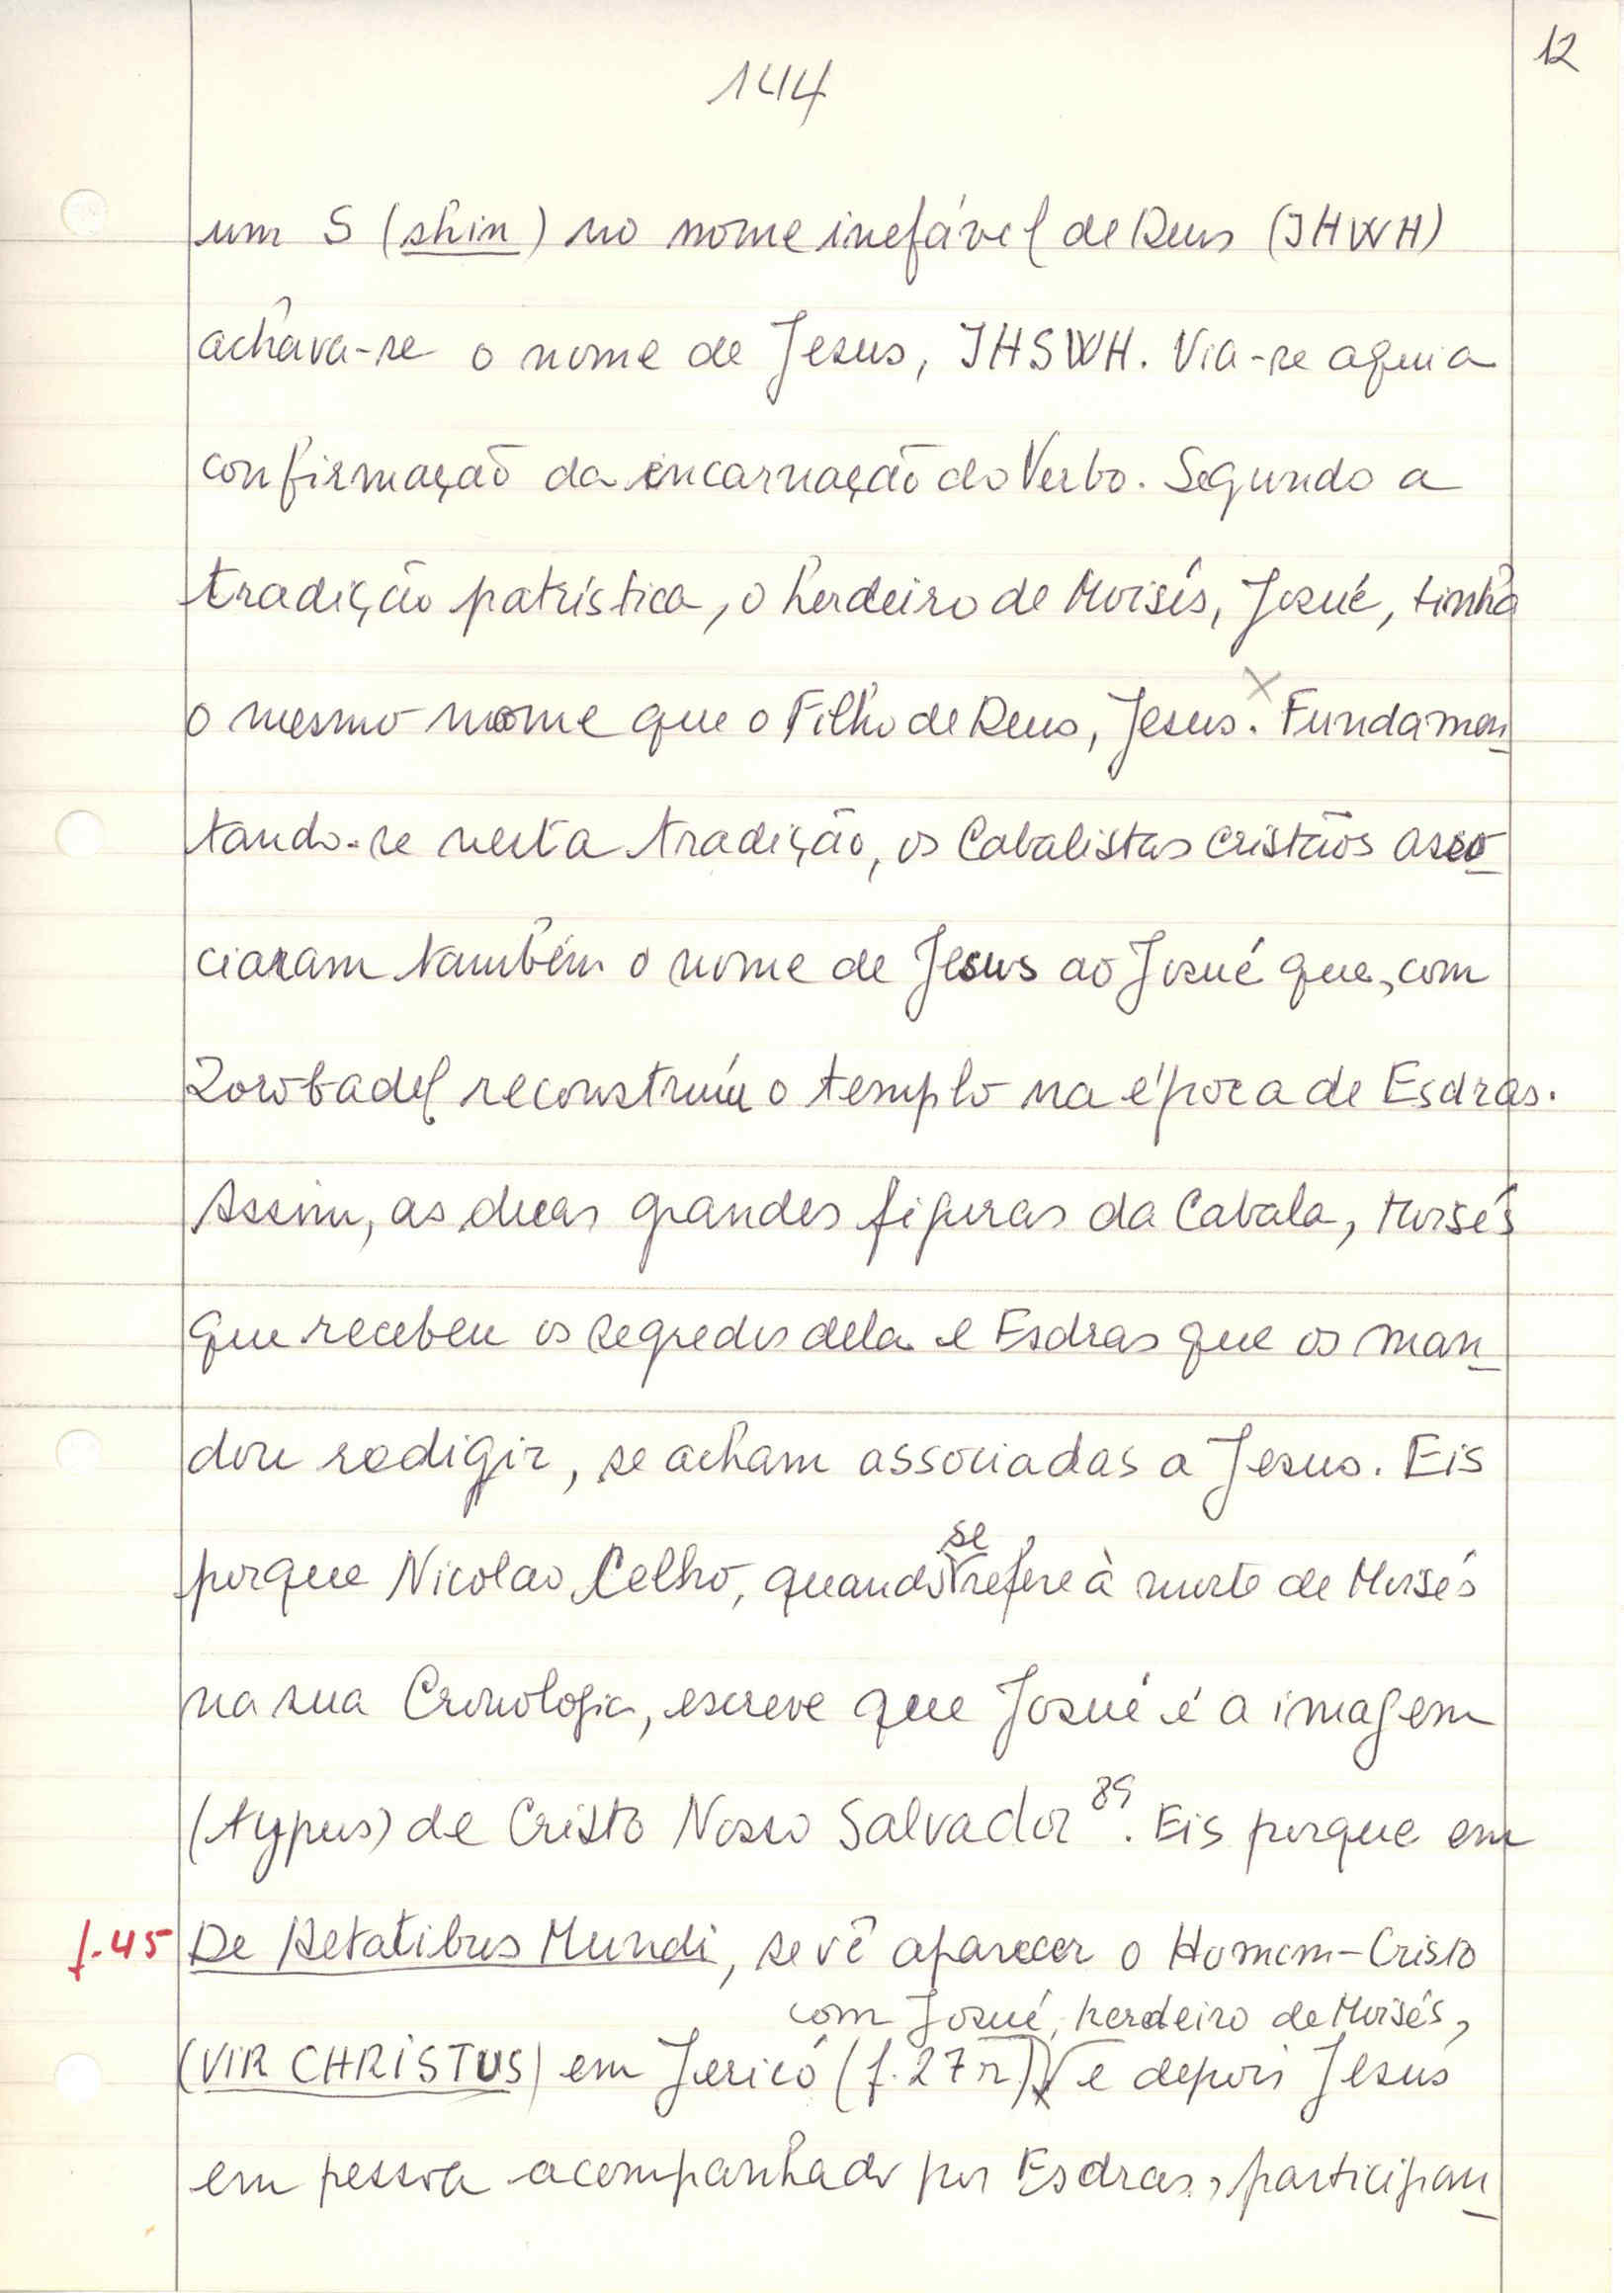 12
144
um S (shin) no nome inefável de Deus (JHWH)
achava-se o nome de Jesus, JHSWH. Via-se aqui a
confirmação da incarnação do Verbo. Segundo a
tradição patrística, o herdeiro de Moisés, Josué, tinha
o mesmo nome que o Filho de Deus, Jesus. x Fundamen
tando-se nesta tradição, os Cabalistas cristãos asso
ciaram também o nome de Jesus ao Josué que, com
Zorobadel reconstruíu o templo na época de Esdras.
Assim, as duas grandes figuras da Cabala, Moisés
que recebeu os segredos dela e Esdras que os man
dou redigir, se acham associadas a Jesus. Eis
porque Nicolao Celho, quando se refere à morte de Moisés
na sua Cronologia, escreve que Josué é a imagem
(typus) de Cristo Nosso Salvador 89. Eis porque em
f.45 De Aetatibus Mundi, se vê aparecer o Homem-Cristo
com Josué, herdeiro de Moisés,
(VIR CHRISTUS) em Jericó (f.27r) e depois Jesus
em pessoa acompanhado por Esdras, participan